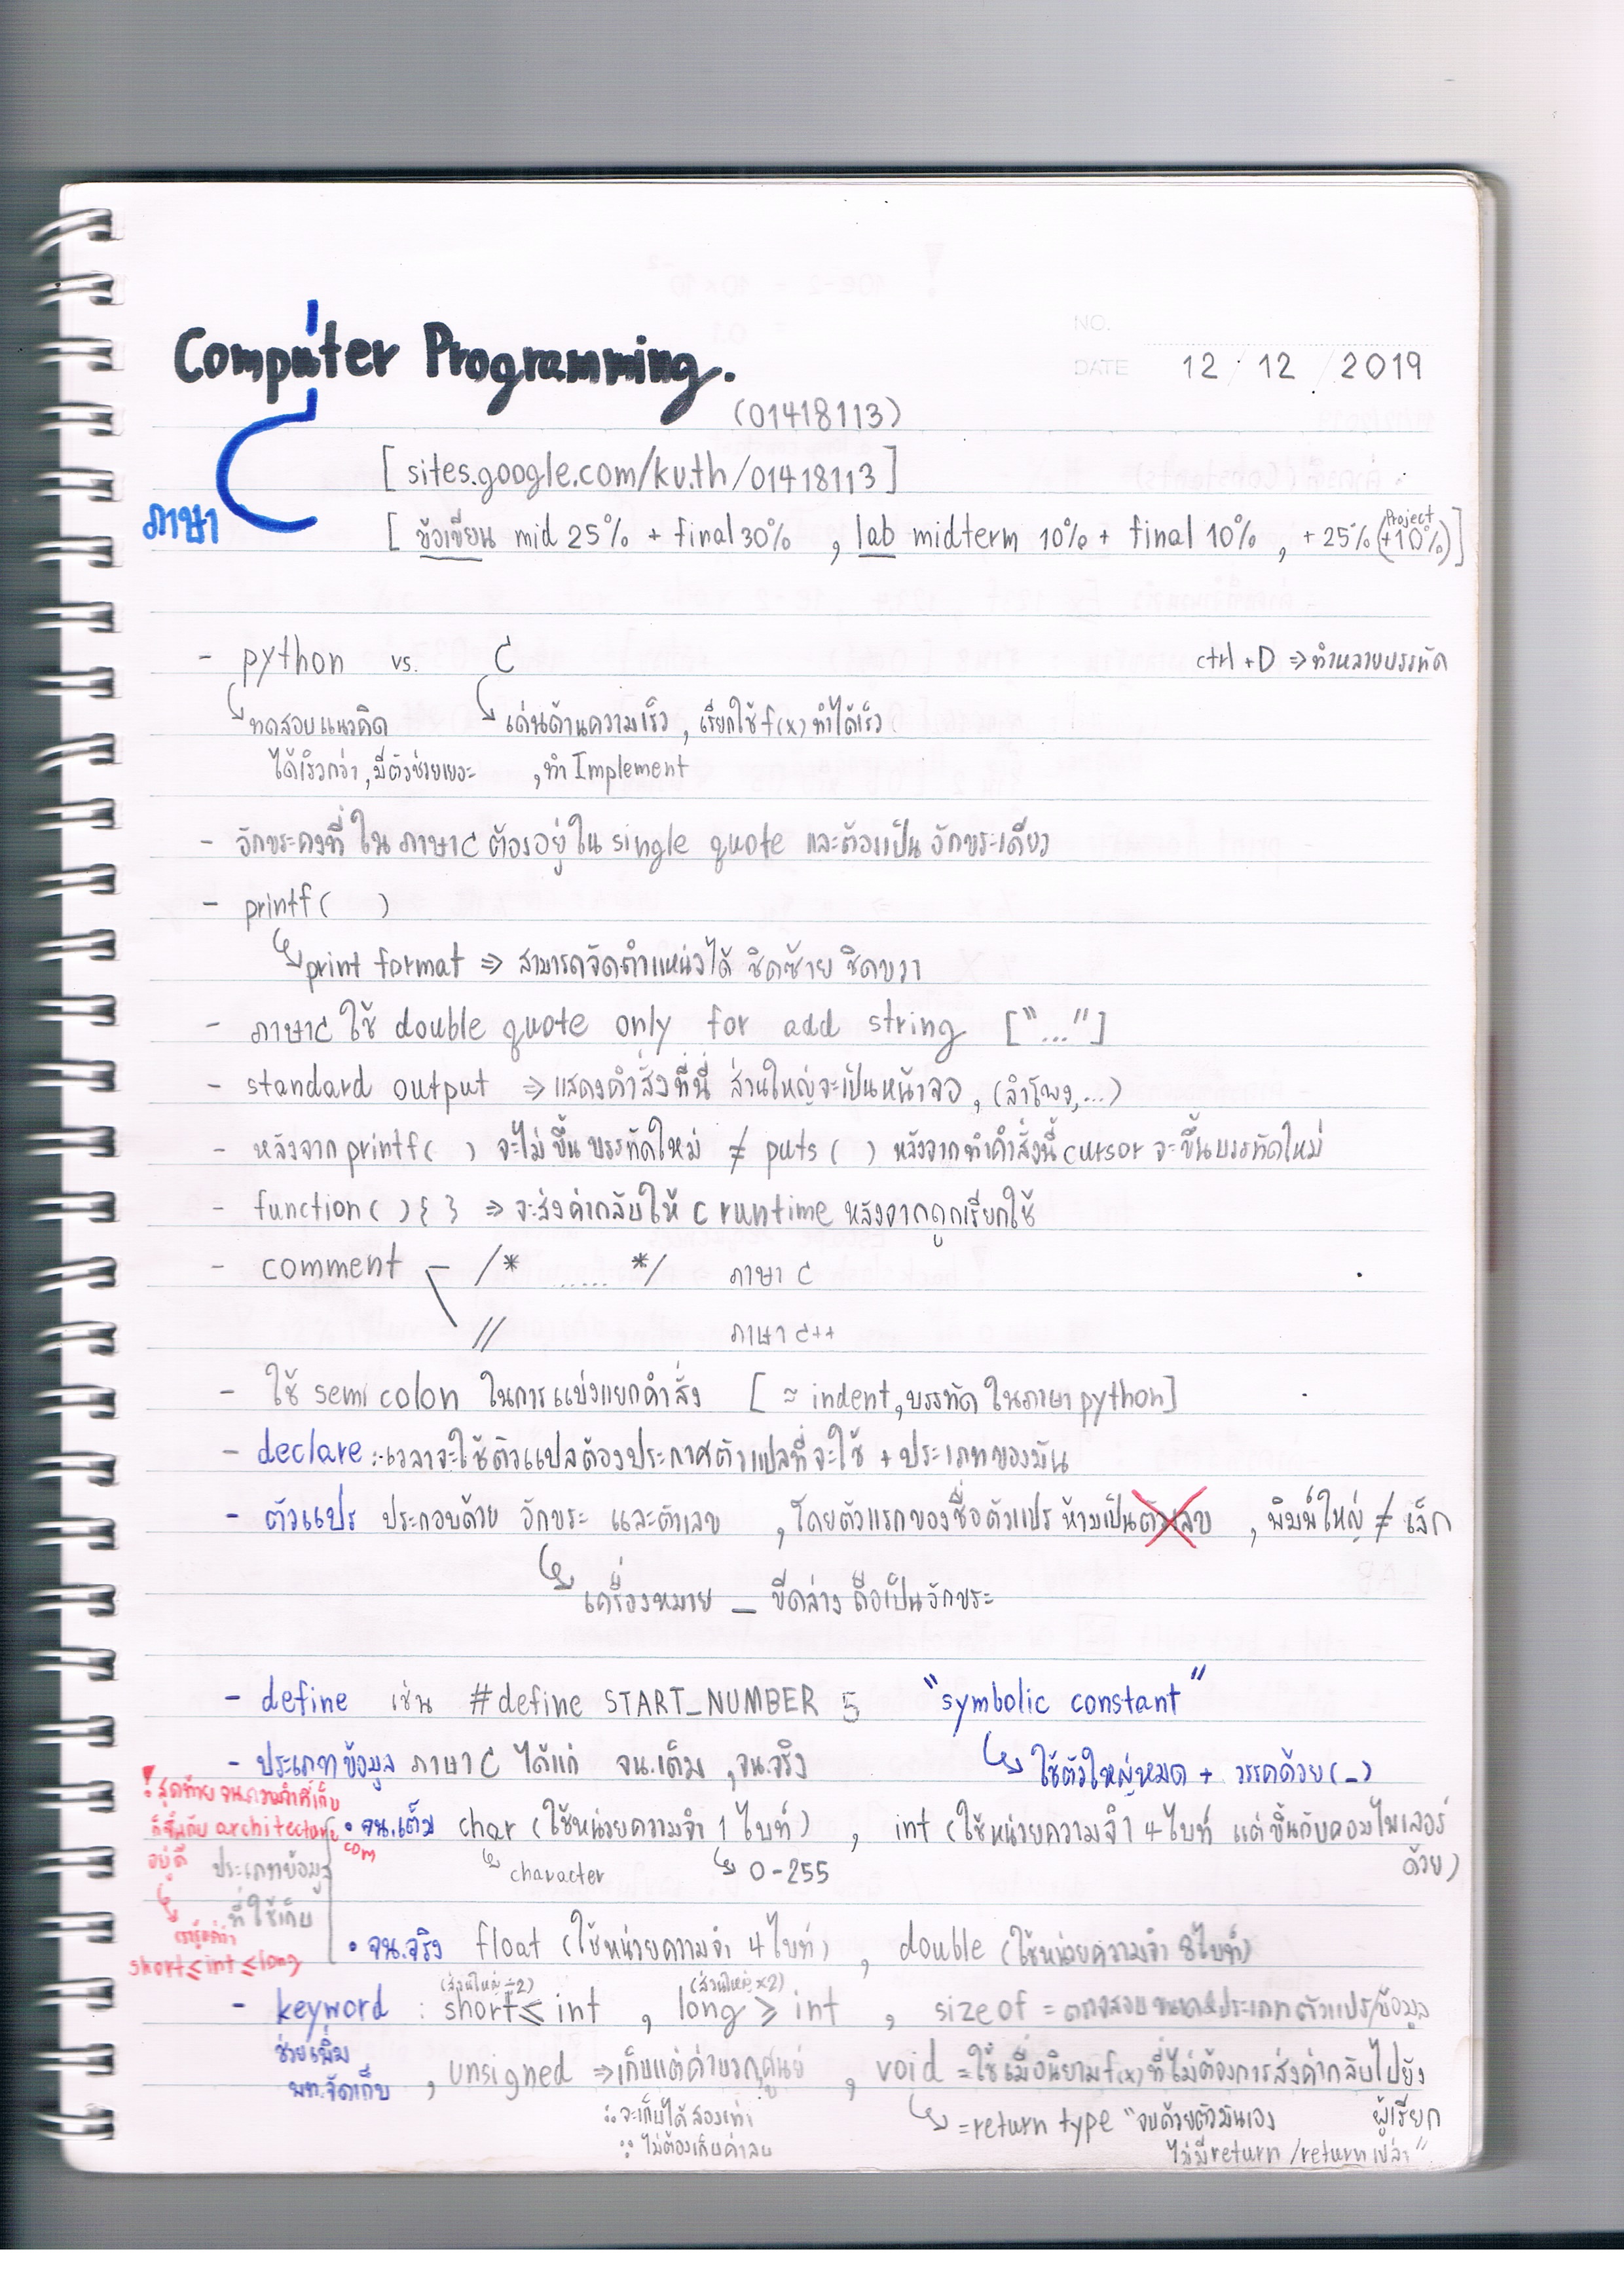 Computer Programming.
NO.
DATE 12 / 12 / 2019
(01418113)
ภาษา C
[ sites.google.com/ku.th/01418113 ]
[ ข้อเขียน mid 25% + final 30% , lab midterm 10% + final 10% , +25% (Project +10%) ]
- python vs. C
ctrl + D ⇒ ทำหลายบรรทัด
ทดสอบแนวคิด
เด่นด้านความเร็ว , เรียกใช้ f(x) ทำได้เร็ว
ได้เร็วกว่า , มีตัวช่วยเยอะ
, ทำ Implement
- อักขระคงที่ ใน ภาษา C ต้องอยู่ใน single quote และต้องเป็น อักขระเดียว
- printf( )
print format ⇒ สามารถจัดตำแหน่งได้ ชิดซ้าย ชิดขวา
- ภาษา C ใช้ double quote only for add string ["..."]
- standard output ⇒ แสดงคำสั่งที่นี่ ส่วนใหญ่จะเป็นหน้าจอ , (ลำโพง,...)
- หลังจาก printf( ) จะไม่ ขึ้น บรรทัดใหม่ ≠ puts ( ) หลังจากทำคำสั่งนี้ cursor จะขึ้นบรรทัดใหม่
- function( ) { } ⇒ จะส่งค่ากลับให้ C runtime หลังจากถูกเรียกใช้
- comment - /* ...... */ ภาษา C
// ภาษา C++
- ใช้ semi colon ในการแบ่งแยกคำสั่ง [ ≈ indent , บรรทัด ในภาษา python ]
- declare :- เวลาจะใช้ตัวแปลต้องประกาศตัวแปลที่จะใช้ + ประเภทของมัน
- ตัวแปร ประกอบด้วย อักขระ และตัวเลข , โดยตัวแรกของชื่อตัวแปร ห้ามเป็นตัวเลข , พิมพ์ใหญ่ ≠ เล็ก
เครื่องหมาย _ ขีดล่าง ถือเป็นอักขระ
- define เช่น #define START_NUMBER 5 "symbolic constant"
ใช้ตัวใหญ่หมด + วรรคด้วย (_)
- ประเภทข้อมูล ภาษา C ได้แก่ จน.เต็ม , จน.จริง
! สุดท้าย จน.ความจำที่เก็บ
ก็ขึ้นกับ architecture
com
อยู่ดี
ประเภทข้อมูล
ที่ใช้เก็บ
short ≤ int ≤ long
• จน.เต็ม char (ใช้หน่วยความจำ 1 ไบท์) , int (ใช้หน่วยความจำ 4 ไบท์ แต่ขึ้นกับคอมไพเลอร์
ด้วย)
character
0-255
• จน.จริง float (ใช้หน่วยความจำ 4 ไบท์) , double (ใช้หน่วยความจำ 8 ไบท์)
(ส่วนใหญ่ ÷2) (ส่วนใหญ่ ×2)
- keyword : short ≤ int , long ≥ int , sizeof = ตรวจสอบขนาดประเภทตัวแปร/ข้อมูล
ช่วยเพิ่ม
พท.จัดเก็บ
, unsigned ⇒ เก็บแต่ค่าบวก,ศูนย์ , void = ใช้เมื่อนิยาม f(x) ที่ไม่ต้องการส่งค่ากลับไปยัง
ผู้เรียก
∴ จะเก็บได้ สองเท่า
∵ ไม่ต้องเก็บค่าลบ
= return type "จบด้วยตัวมันเอง
ไม่มี return / return เปล่า"